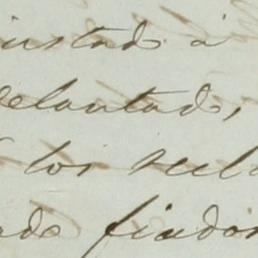 justado á
delantado,
los suel
ado fiador